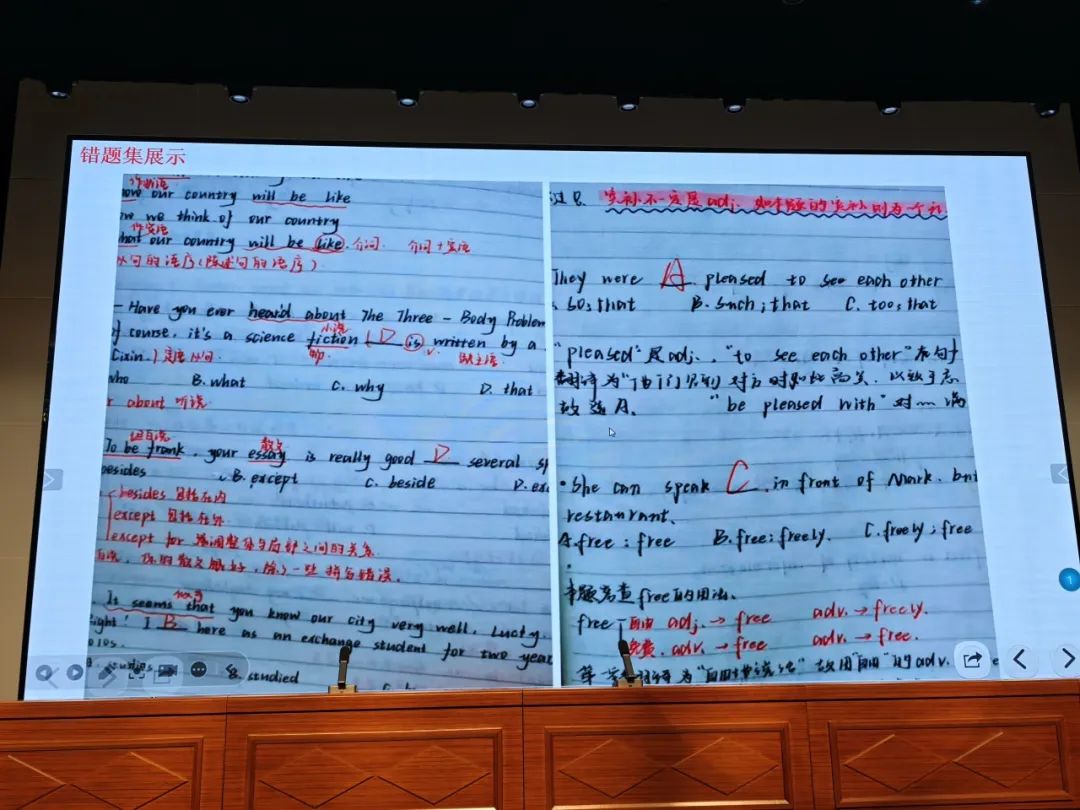 错题集展示
作宾语
our country will be like
we think of our country
作宾语
our country will be like 介词 介词+宾语
从句的语序(陈述句的语序)
- Have you ever heard about The Three-Body Problem
course, it's a science fiction D is written by a
小说
Cixin. 定语从句 做主语
who B. what C. why D. that
about 听说
坦白说 散文
To be frank, your essay is really good D several
besides B. except C. beside D.
besides 包括在内
except 包括在外
except for 强调整体与局部之间的关系
你的散文很好,除了一些拼写错误。
似乎
It seems that you know our city very well, Lucy.
I B here as an exchange student for two year
studies B. studied
宾补不一定是adj.
They were A pleased to see each other
so; that B. such; that C. too; that
"pleased"是adj., "to see each other"
翻译为"他们见到对方时如此高兴
故选A. "be pleased with" 对…满
She can speak C in front of Mark, but
restaurant.
A. free; free B. free; freely. C. freely; free
本题考查free的用法.
free 自由 adj. → free adv. → freely.
免费. adv. → free adv. → free.
"自由地说话" 故用"自由"的adv.
1